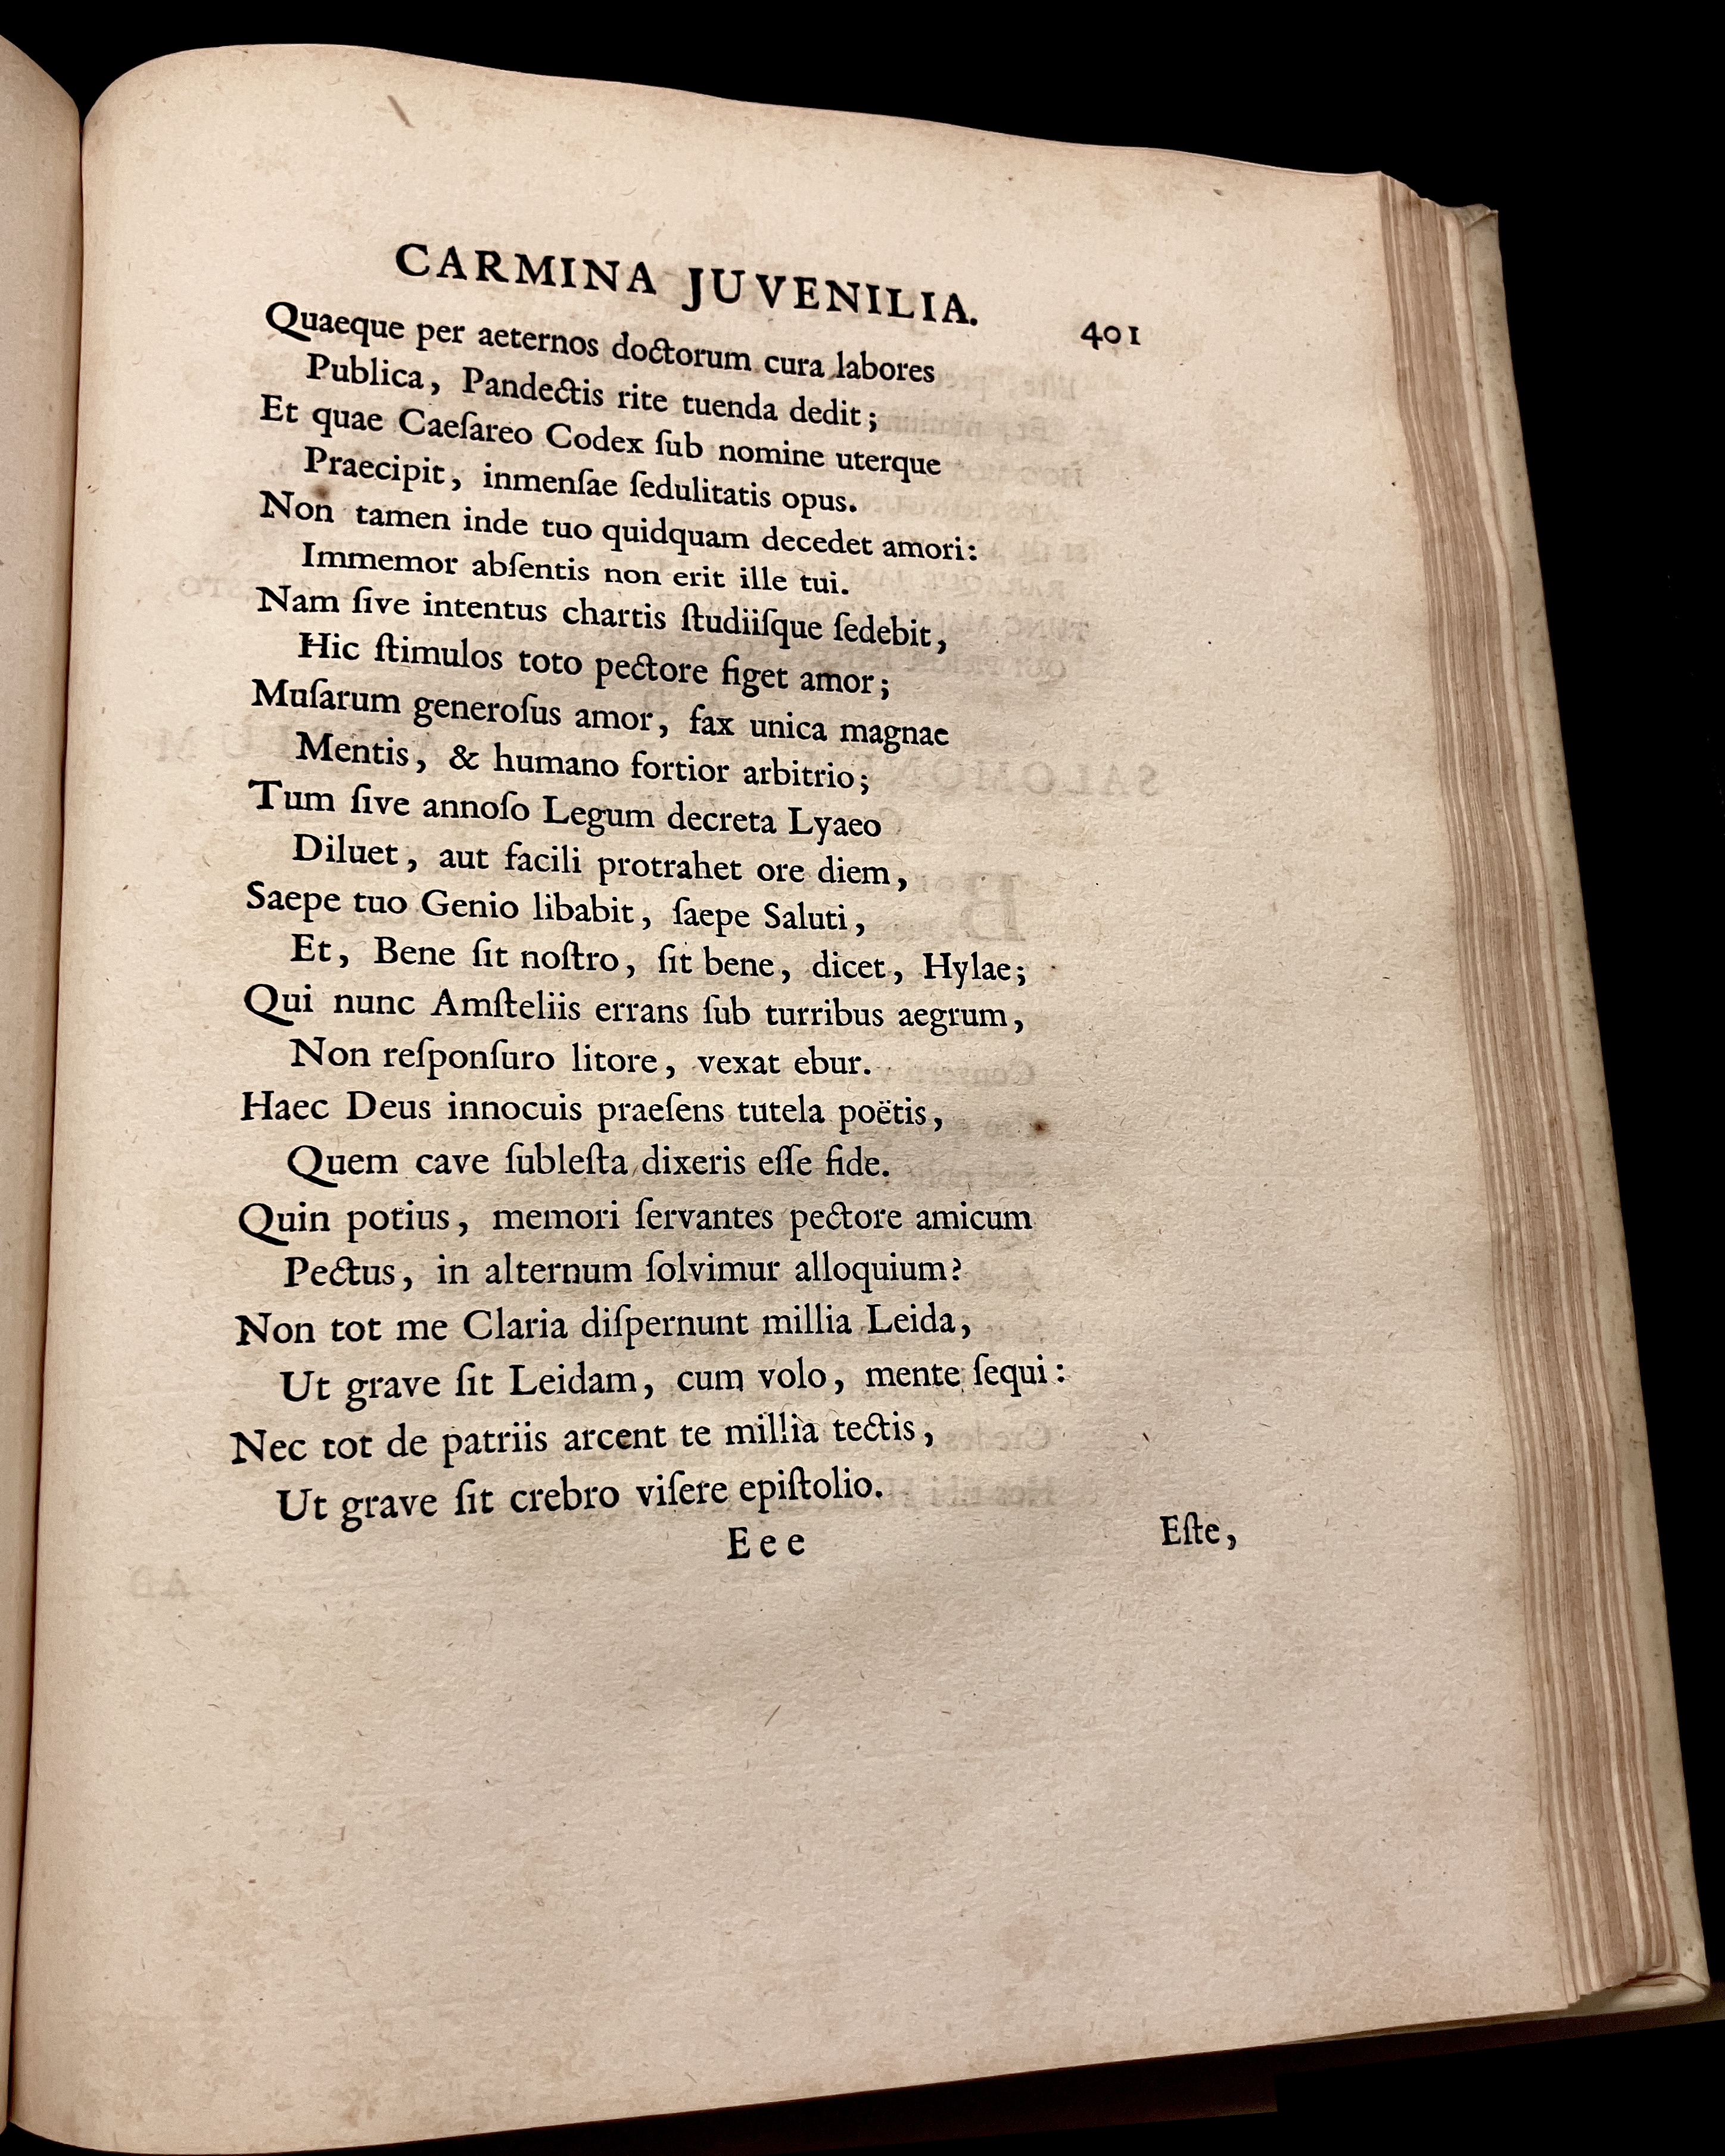 CARMINA JUVENILIA. 401
Quaeque per aeternos doctorum cura labores
Publica, Pandectis rite tuenda dedit;
Et quae Caeſareo Codex ſub nomine uterque
Praecipit, inmenſae ſedulitatis opus.
Non tamen inde tuo quidquam decedet amori:
Immemor abſentis non erit ille tui.
Nam ſive intentus chartis ſtudiiſque ſedebit,
Hic ſtimulos toto pectore figet amor;
Muſarum generoſus amor, fax unica magnae
Mentis, & humano fortior arbitrio;
Tum ſive annoſo Legum decreta Lyaeo
Diluet, aut facili protrahet ore diem,
Saepe tuo Genio libabit, ſaepe Saluti,
Et, Bene ſit noſtro, ſit bene, dicet, Hylae;
Qui nunc Amſteliis errans ſub turribus aegrum,
Non reſponſuro litore, vexat ebur.
Haec Deus innocuis praeſens tutela poëtis,
Quem cave ſubleſta dixeris eſſe fide.
Quin potius, memori ſervantes pectore amicum
Pectus, in alternum ſolvimur alloquium?
Non tot me Claria diſpernunt millia Leida,
Ut grave ſit Leidam, cum volo, mente ſequi:
Nec tot de patriis arcent te millia tectis,
Ut grave ſit crebro viſere epiſtolio.
Eee Eſte,